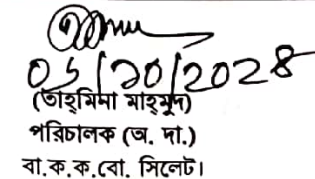 ০৬/১০/২০২৪
(তাহ্‌মিনা মাহ্‌মুদ)
পরিচালক (অ. দা.)
বা.ক.ক.বো. সিলেট।